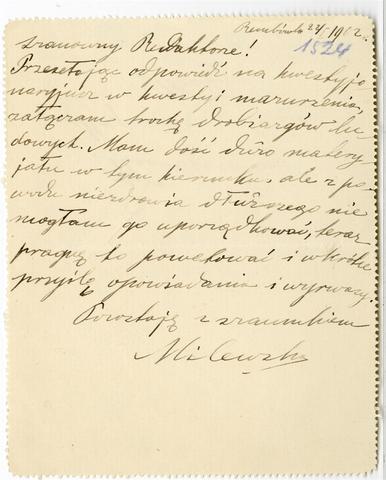 Rembówko 22/I 1902.
1524
Szanowny Redaktorze!
Przesełając odpowiedź na kwestyjo
naryjusz w kwestyi mazurzenia,
załączam trochę drobiazgów lu
dowych. Mam dość dużo matery
jału w tym kierunku, ale z po
wodu niezdrowia dłuższego nie
mogłam go uporządkować, teraz
pragnę to powetować i wkrótce
przyślę opowiadania i wyrwasy.
Pozostaję z szacunkiem
Milewska